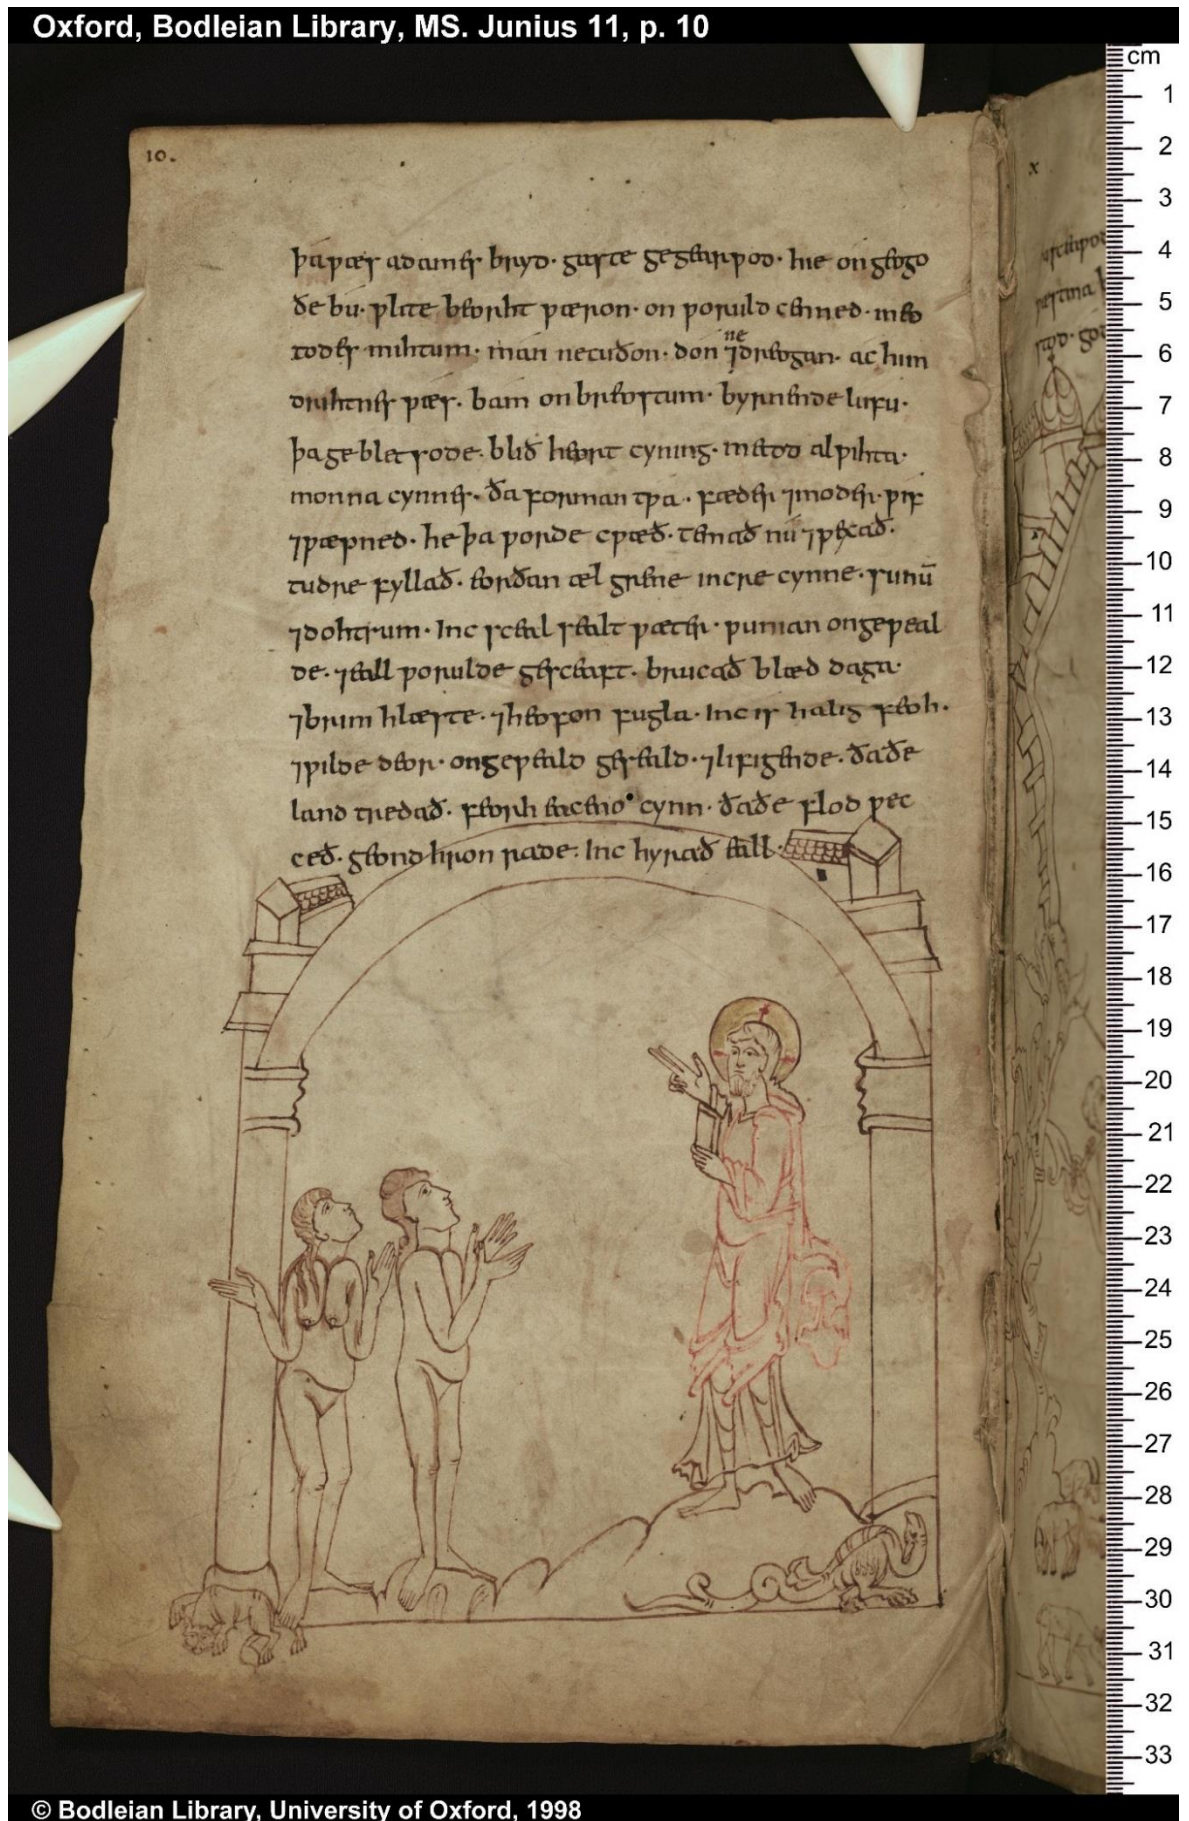 Oxford, Bodleian Library, MS. Junius 11, p. 10
cm
10.
x
þa ƿæs adames bryd· gaste gegearƿod· hie on geogo
ðe bu· ƿlite beorht ƿæron· on ƿoruld cenned· meo
todes mihtum· man ne cuðon· don ne ⁊dreogan· ac him
drihtnes ƿæs· bam on breostum· byrnende lufu·
þa gebletsode· blið heort cyning· metod alƿihta·
monna cynnes· ða forman tƿa· fæder ⁊moder· ƿif
⁊ƿæpned· he þa ƿorde cƿæð· temað nu ⁊ƿexað·
tudre fyllað· eorðan æl grene incre cynne· sunū
⁊dohtrum· Inc sceal sealt ƿæter· ƿunian on geƿeal
de· ⁊eall ƿorulde gesceaft· brucað blæd daga·
⁊brim hlæste· ⁊heofon fugla· Inc is halig feoh·
⁊ƿilde deor· on geƿeald geseald· ⁊lifigende· ðaðe
land tredað· feorh eaceno cynn· ðaðe flod ƿec
ceð· geond hron rade· Inc hyrað eall·
1
2
3
4
5
6
7
8
9
10
11
12
13
14
15
16
17
18
19
20
21
22
23
24
25
26
27
28
29
30
31
32
33
© Bodleian Library, University of Oxford, 1998